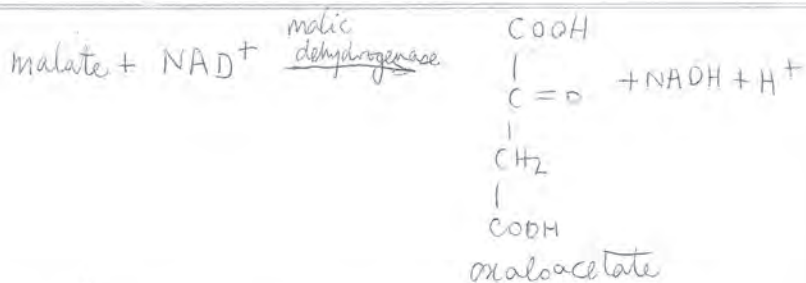 malate + NAD⁺ malic dehydrogenase
COOH
|
C = O + NADH + H⁺
|
CH₂
|
COOH
oxaloacetate